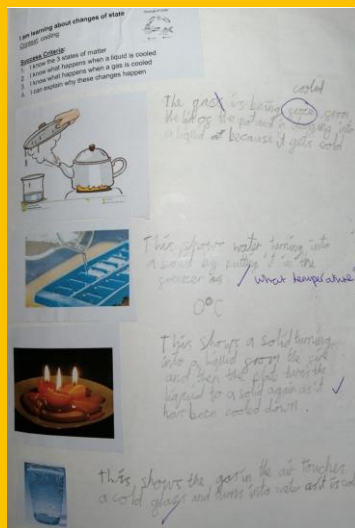 I am learning about changes of state
Context: cooling
Success Criteria:
1. I know the 3 states of matter
2. I know what happens when a liquid is cooled
3. I know what happens when a gas is cooled
4. I can explain why these changes happen
cooled
The gas is being
the lid of the pot and is changing into
a liquid because it gets cold
This shows water turning into
a solid by putting it in the
freezer
what temperature
0°C
This shows a solid turning
into a liquid from the fire
and then the plate turns the
liquid to a solid again as it
has been cooled down.
This shows the gas in the air touches
a cold glass and turns into water as it is